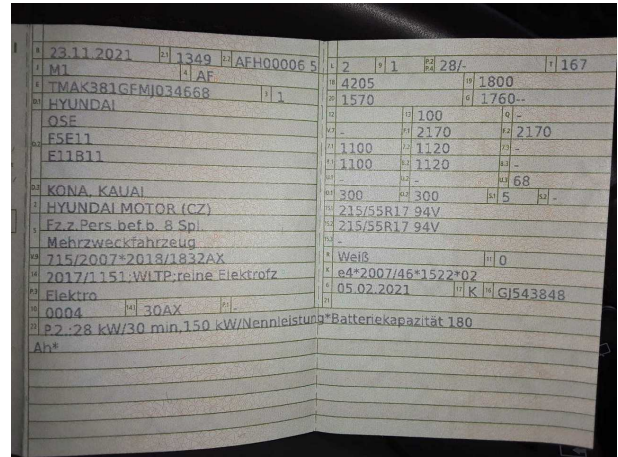 B 23.11.2021 2.1 1349 2.2 AFH00006 5
J M1 4 AF
E TMAK381GFMJ034668 3 1
D.1 HYUNDAI
D.2 OSE
F5E11
E11B11
D.3 KONA, KAUAI
2 HYUNDAI MOTOR (CZ)
5 Fz.z.Pers.bef.b. 8 Spl.
Mehrzweckfahrzeug
V.9 715/2007*2018/1832AX
14 2017/1151;WLTP;reine Elektrofz
P.3 Elektro
10 0004 14.1 30AX P.1 -
22 P.2.:28 kW/30 min,150 kW/Nennleistung*Batteriekapazität 180
Ah*
L 2 9 1 P.2 P.4 28/- T 167
18 4205 19 1800
20 1570 G 1760--
12 - 13 100 Q -
V.7 - F.1 2170 F.2 2170
7.1 1100 7.2 1120 7.3 -
8.1 1100 8.2 1120 8.3 -
U.1 - U.2 - U.3 68
O.1 300 O.2 300 S.1 5 S.2 -
15.1 215/55R17 94V
15.2 215/55R17 94V
15.3 -
R Weiß 11 0
K e4*2007/46*1522*02
6 05.02.2021 17 K 16 GJ543848
21